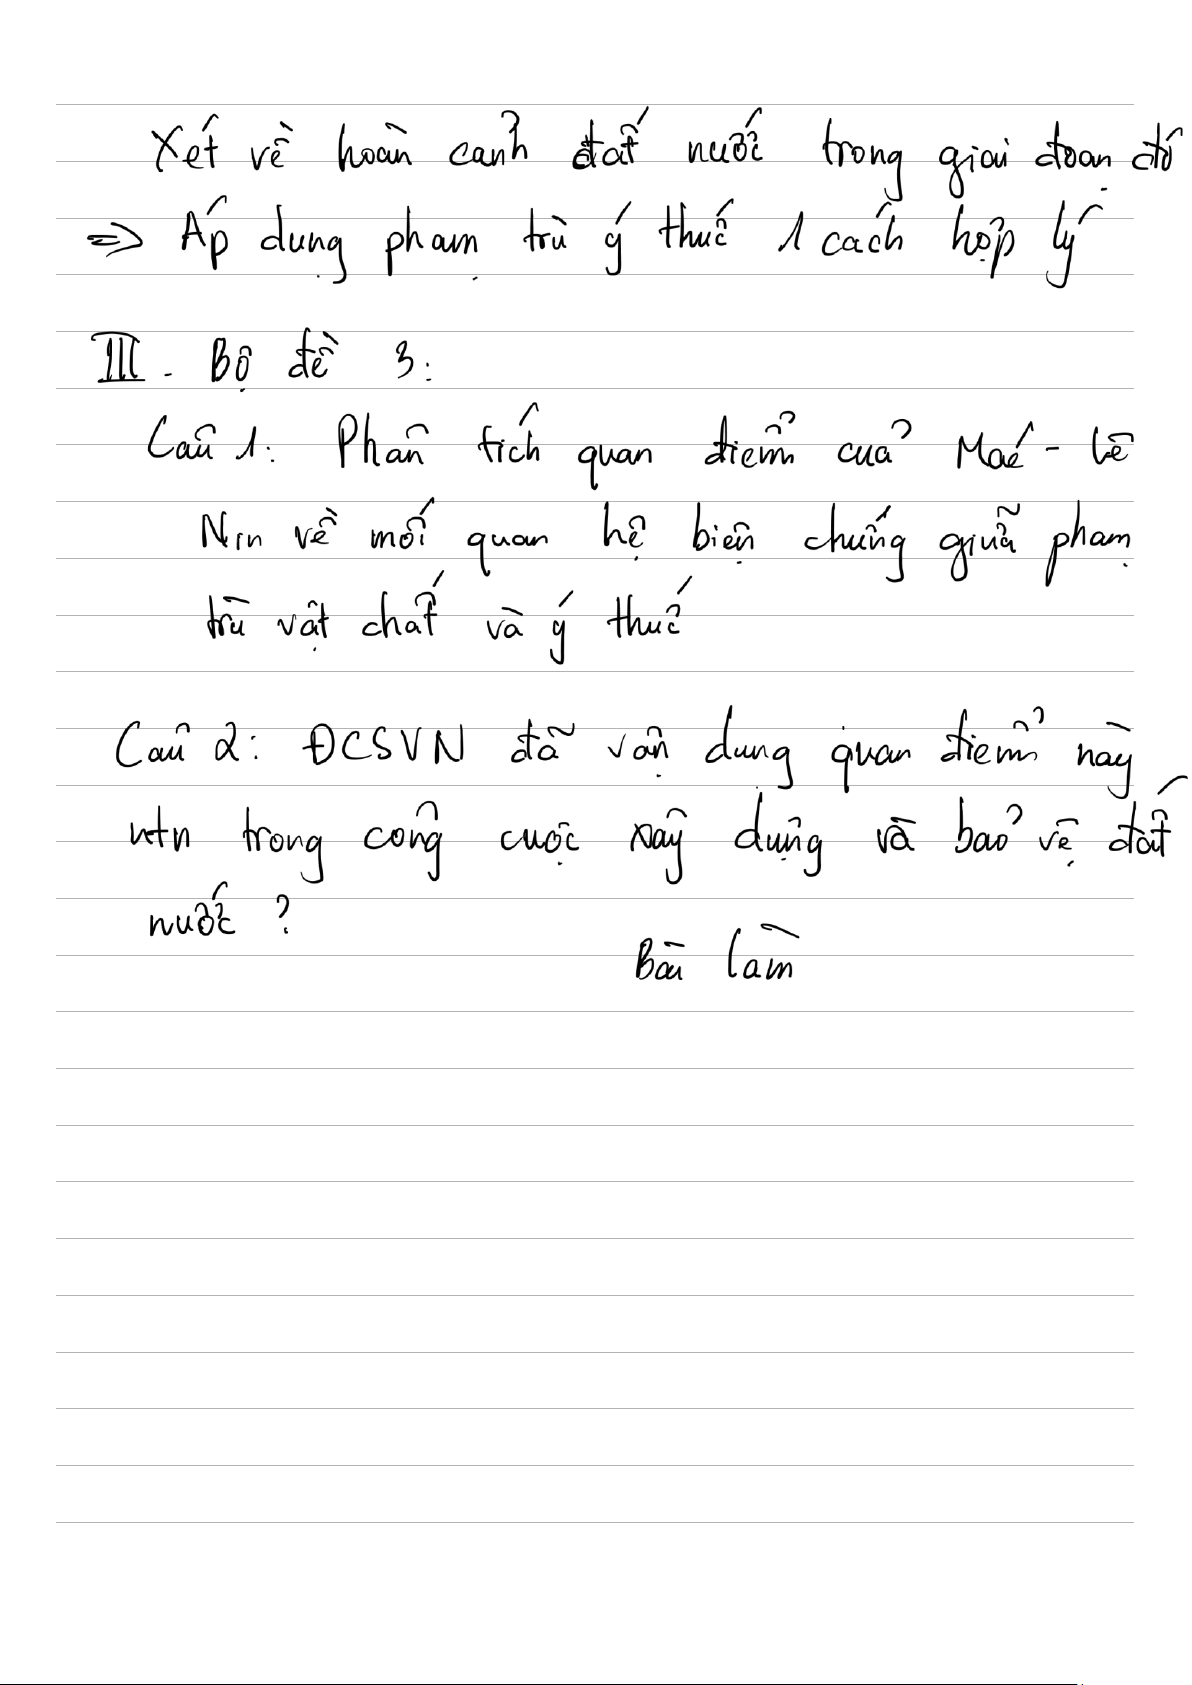 Xét về hoàn cảnh đất nước trong giai đoạn đó
=> Áp dụng phạm trù ý thức 1 cách hợp lý
III. Bộ đề 3:
Câu 1: Phân tích quan điểm của Mác - Lê
Nin về mối quan hệ biện chứng giữa phạm
trù vật chất và ý thức
Câu 2: ĐCSVN đã vận dụng quan điểm này
ntn trong công cuộc xây dựng và bảo vệ đất
nước ?
Bài làm